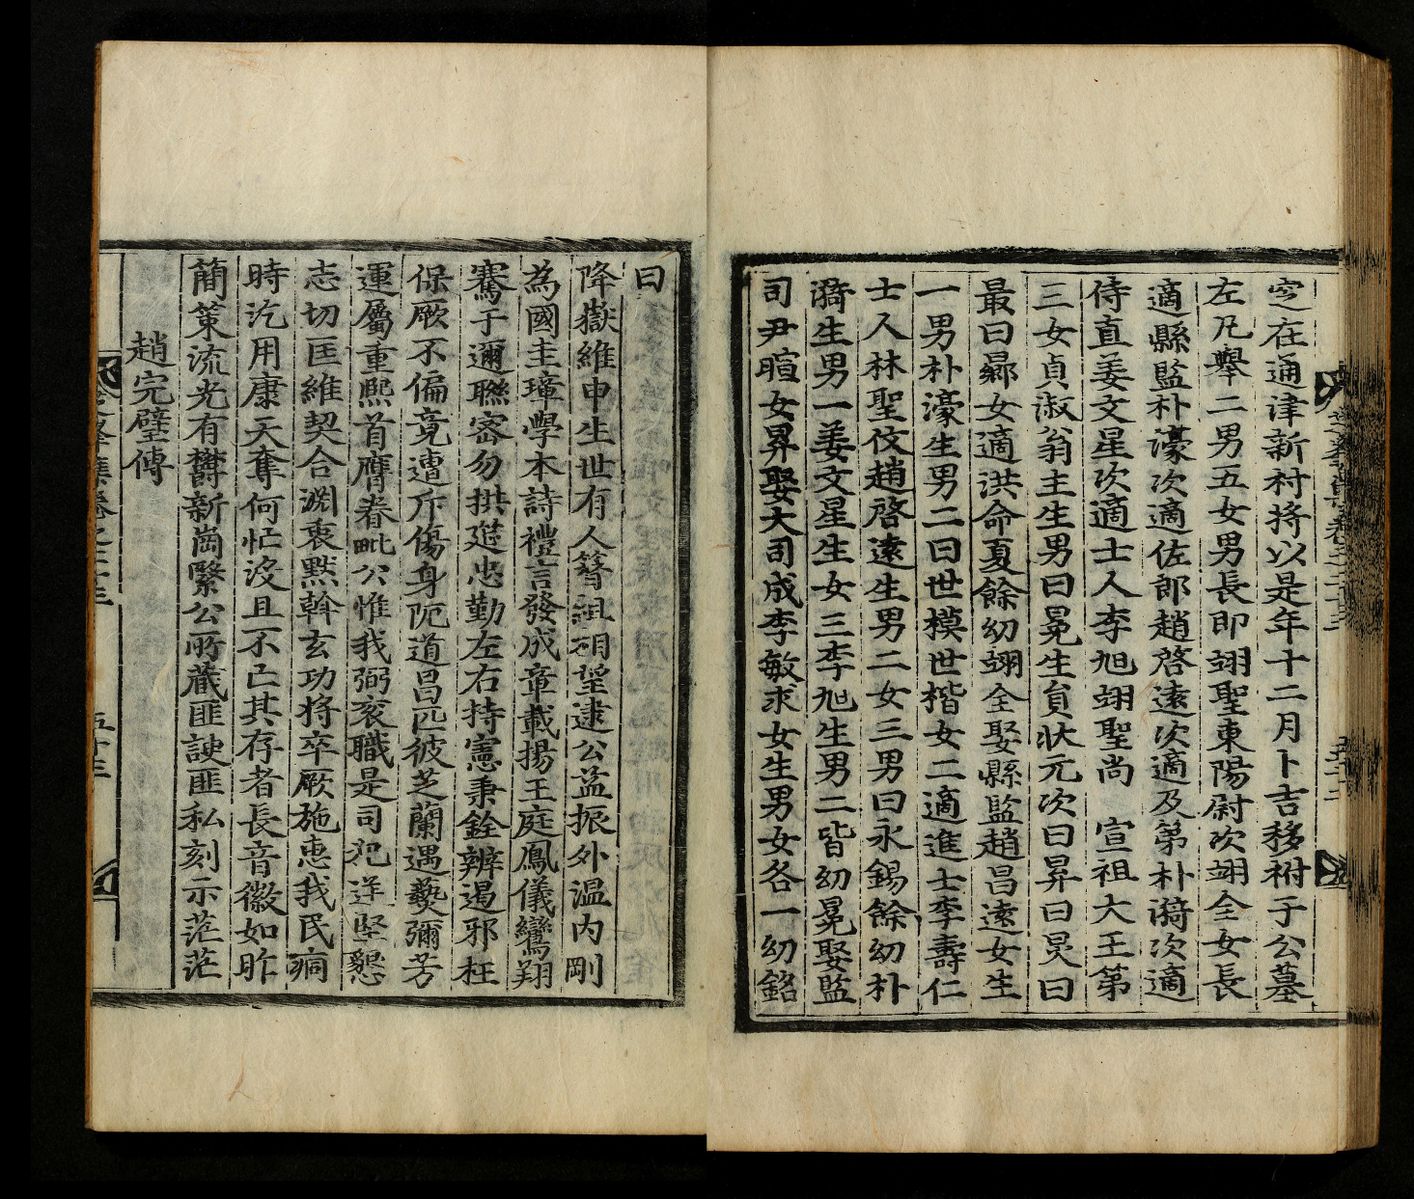 窆在通津新村將以是年十二月卜吉移祔于公墓
左凡擧二男五女男長即翊聖東陽尉次翊全女長
適縣監朴濠次適佐郎趙啓遠次適及第朴漪次適
侍直姜文星次適士人李旭翊聖尚　宣祖大王第
三女貞淑翁主生男曰冕生員狀元次曰昇曰炅曰
最曰䎖女適洪命夏餘幼翊全娶縣監趙昌遠女生
一男朴濠生男二曰世模世楷女二適進士李壽仁
士人林聖伋趙啓遠生男二女三男曰永錫餘幼朴
漪生男一姜文星生女三李旭生男二皆幼冕娶監
司尹暄女昇娶大司成李敏求女生男女各一幼銘
曰
降嶽維申生世有人簪組相望逮公益振外温内剛
爲國圭璋學本詩禮言發成章載揚王庭鳳儀鸞翔
騫于邇聯密勿拱莚忠勤左右持憲秉銓辨遏邪枉
保厥不偏竟遭斥傷身阨道昌匹彼芝蘭遇爇彌芳
運屬重熙首膺眷毗公惟我弼衮職是司犯逆堅懇
志切匡維契合淵衷默斡玄功將卒厥施惠我民痌
時汔用康天奪何忙没且不亡其存者長音徽如昨
簡策流光有欝新崗繄公所藏匪諛匪私刻示茫茫
趙完璧傳
芝峯集卷之二十三
五十三